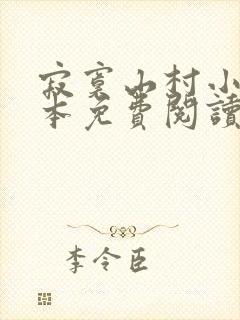 寂寞山村小
本免費閱讀
李令臣